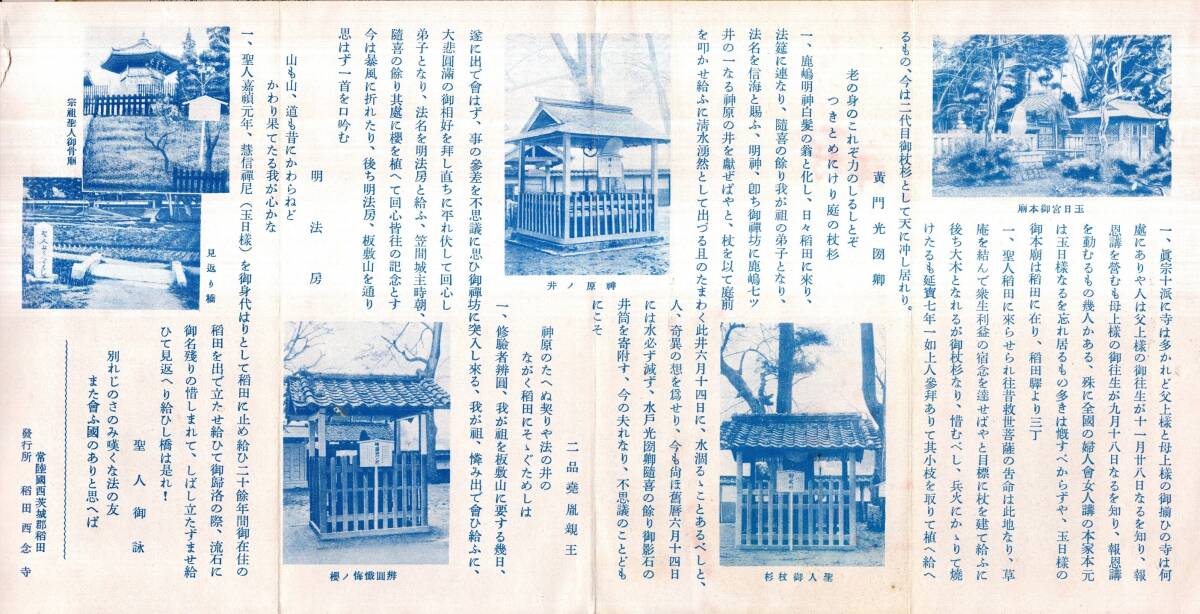 玉日宮御本廟
一、眞宗十派に寺は多かれど父上樣と母上樣の御揃ひの寺は何
處にありや人は父上樣の御往生が十一月廿八日なるを知り、報
恩講を營むも母上樣の御往生が九月十八日なるを知り、報恩講
を勤むるもの幾人かある、殊に全國の婦人會女人講の本家本元
は玉日樣なるを忘れ居るもの多きは慨すべからずや、玉日樣の
御本廟は稻田に在り、稻田驛より三丁
一、聖人稻田に來らせられ往昔救世菩薩の告命は此地なり、草
庵を結んで衆生利益の宿念を達せばやと目標に杖を建て給ふに
後ち大木となれるが御杖杉なり、惜むべし、兵火にかゝりて燒
けたるも延寶七年一如上人參拜ありて其小枝を取りて植へ給へ
るもの、今は二代目御杖杉として天に冲し居れり。
老の身のこれぞ力のしるしとぞ
つきとめにけり庭の杖杉
黃門光圀卿
一、鹿嶋明神白髪の翁と化し、日々稻田に來り、
法筵に連なり、隨喜の餘り我が祖の弟子となり、
法名を信海と賜ふ、明神、卽ち御禪坊に鹿嶋七ツ
井の一なる神原の井を獻ぜばやと、杖を以て庭前
を叩かせ給ふに淸水湧然として出づる且のたまわく此井六月十四日に、水涸るゝことあるべしと、
聖人御杖杉
人、奇異の想を爲せり、今も尙ほ舊曆六月十四日
には水必ず減ず、水戶光圀卿隨喜の餘り御影石の
井筒を寄附す、今の夫れなり、不思議のことども
にこそ
神原ノ井
二品堯胤親王
神原のたへぬ契りや法の井の
ながく稻田にそゝぐためしは
一、修驗者辨圓、我が祖を板敷山に要する幾日、
遂に出で會はず、事の參差を不思議に思ひ御禪坊に突入し來る、我が祖、憐み出で會ひ給ふに、
大悲圓滿の御相好を拜し直ちに平れ伏して回心し
弟子となり、法名を明法房と給ふ、笠間城主時朝、
隨喜の餘り其處に櫻を植へて回心皆往の記念とす
今は暴風に折れたり、後ち明法房、板敷山を通り
思はず一首を口吟む
明法房
山も山、道も昔にかわらねど
かわり果てたる我が心かな
辨圓懺悔ノ櫻
宗祖聖人御骨廟
一、聖人嘉禎元年、慧信禪尼（玉日樣）を御身代はりとして稻田に止め給ひ二十餘年間御在住の
稻田を出で立たせ給ひて御歸洛の際、流石に
御名殘りの惜しまれて、しばし立たずませ給
ひて見返へり給ひし橋は是れ！
見返り橋
聖人御詠
別れじのさのみ嘆くな法の友
また會ふ國のありと思へば
常陸國西茨城郡稻田
發行所 稻田西念寺